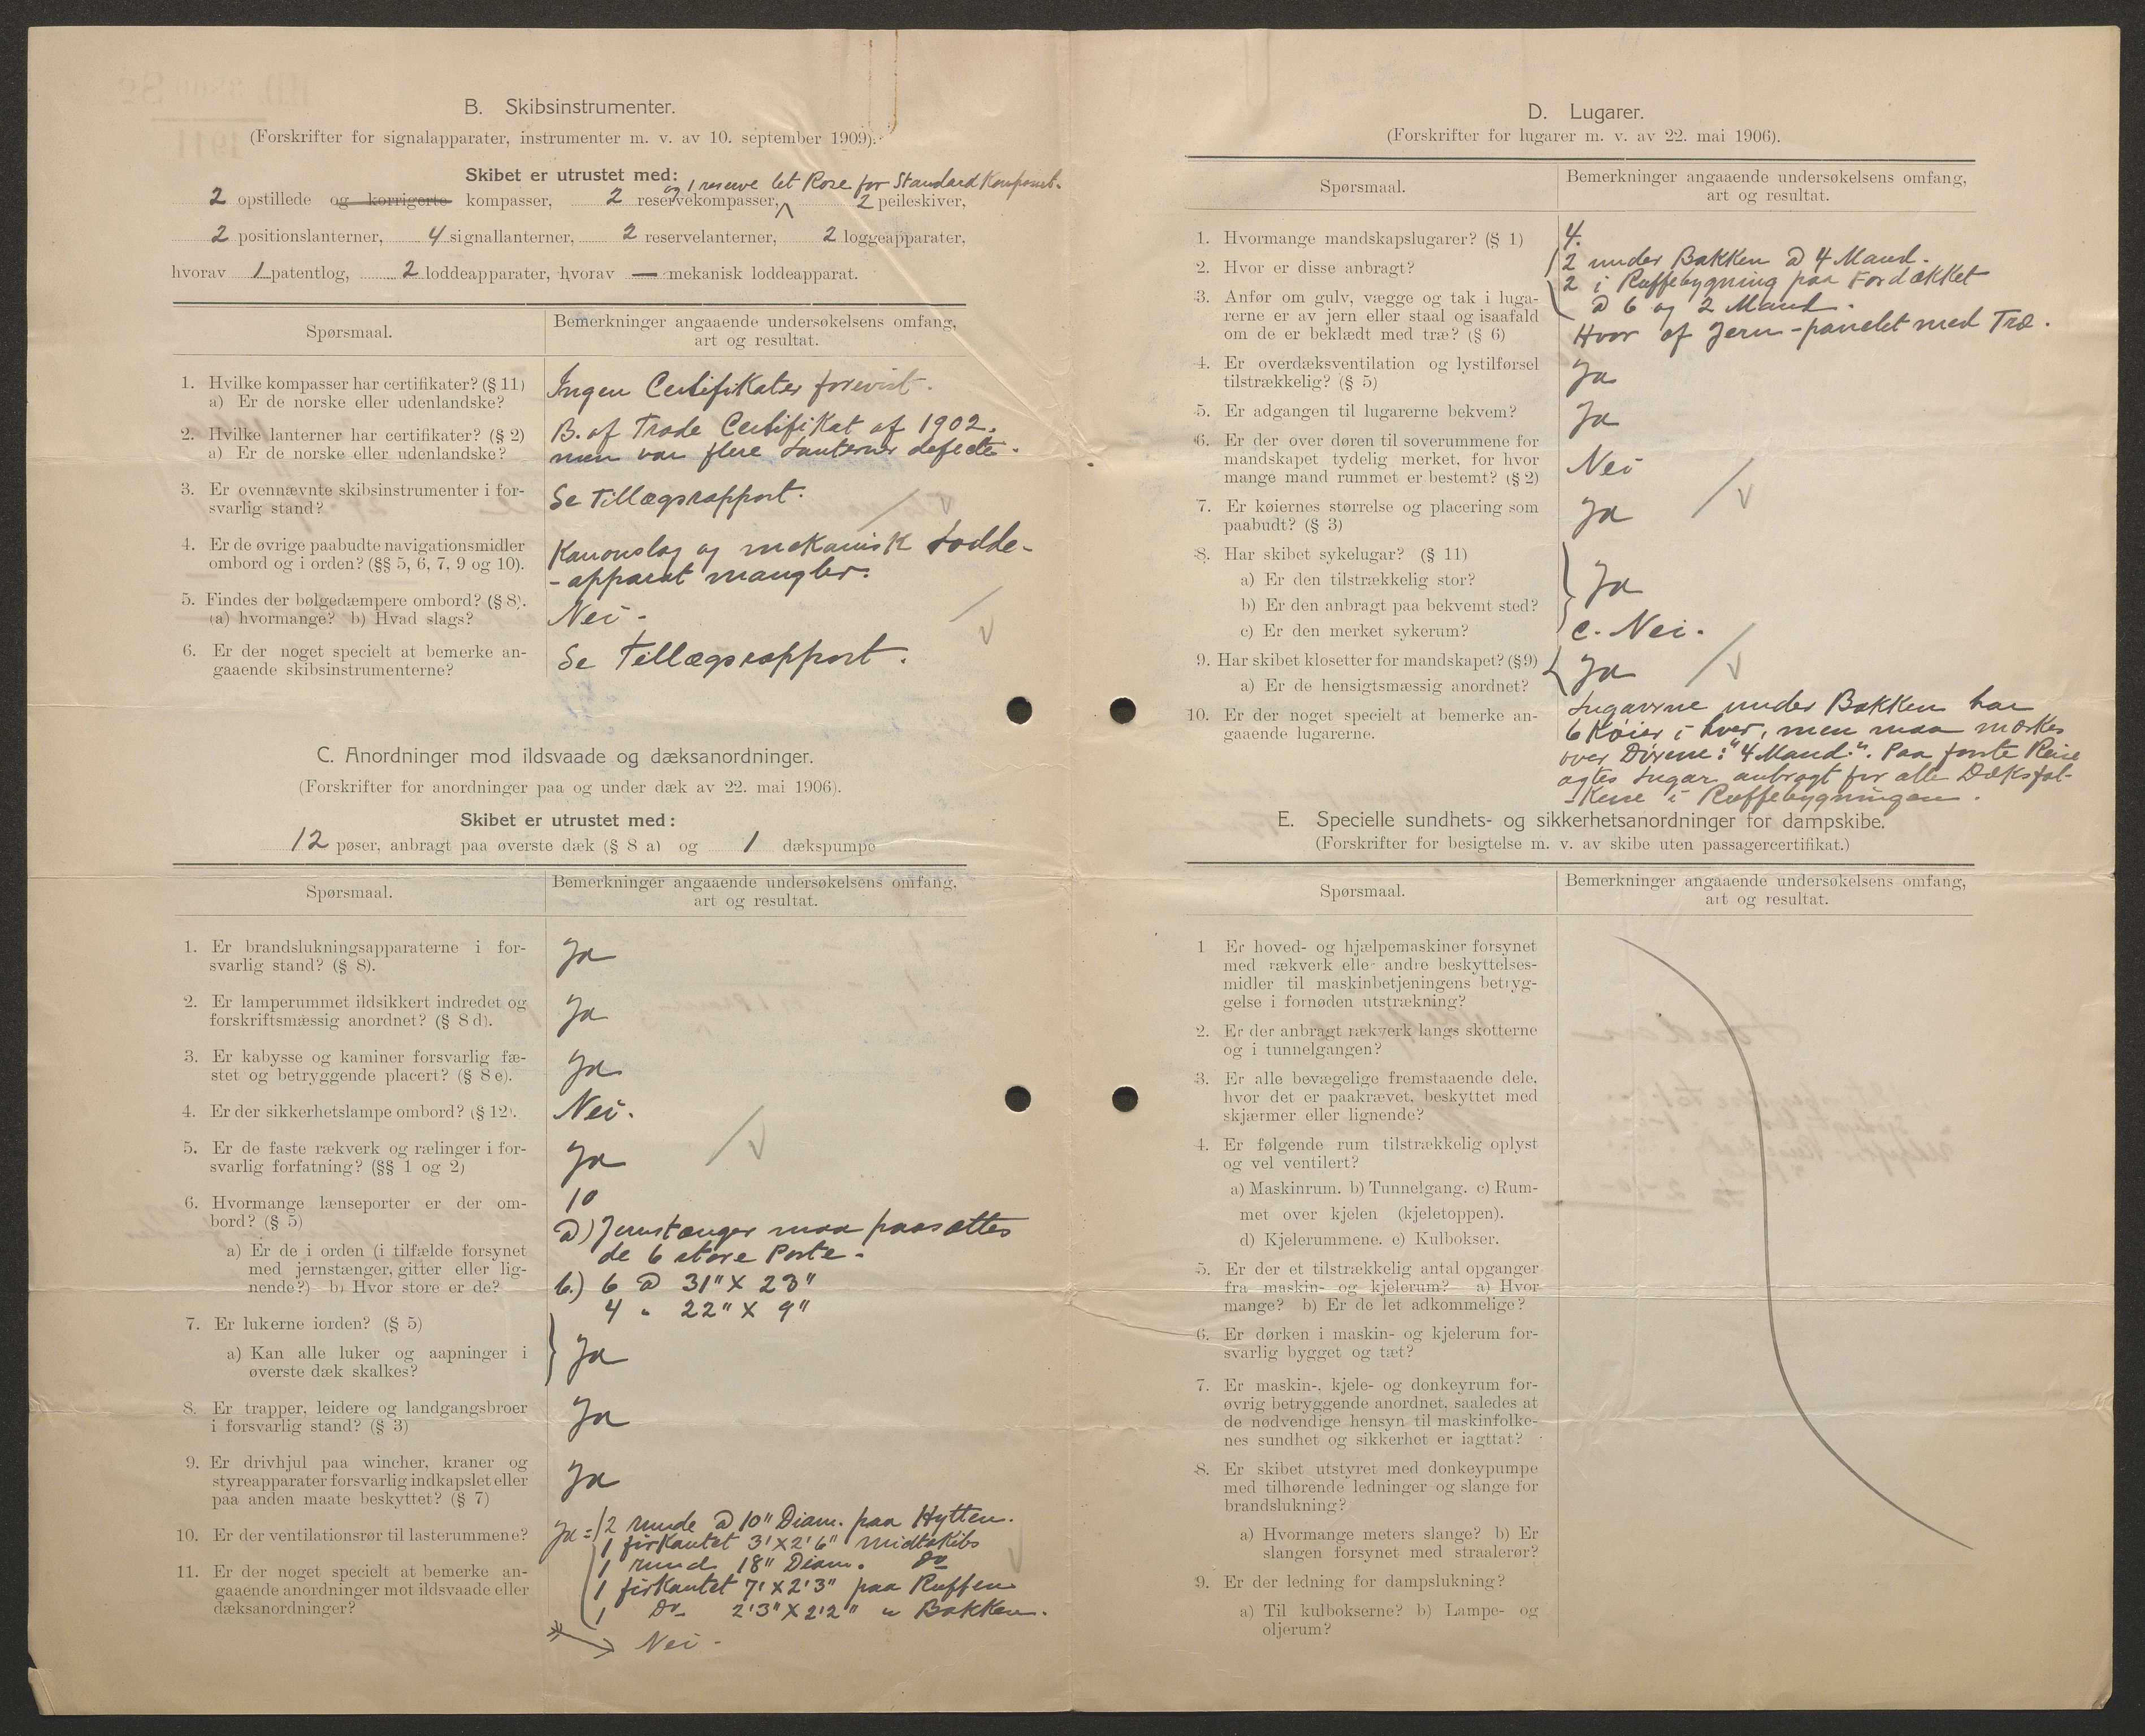 B. Skibsinstrumenter.
(Forskrifter for signalapparater, instrumenter m. v. av 10. september 1909).
Skibet er utrustet med:
og 1 reserve let Rose for Standard Kompasset.
2 opstillede og korrigerte kompasser, 2 reservekompasser, 2 peileskiver,
2 positionslanterner, 4 signallanterner, 2 reservelanterner, 2 loggeapparater,
hvorav 1 patentlog, 2 loddeapparater, hvorav — mekanisk loddeapparat.
Spørsmaal.
Bemerkninger angaaende undersøkelsens omfang,
art og resultat.
1. Hvilke kompasser har certifikater? (§ 11)
a) Er de norske eller udenlandske?
Ingen Certifikater forevist.
2. Hvilke lanterner har certifikater? (§ 2)
a) Er de norske eller udenlandske?
B. of Trade Certifikat af 1902.
men var flere Lanterner defecte.
3. Er ovennævnte skibsinstrumenter i for-
svarlig stand?
Se Tillægsrapport.
4. Er de øvrige paabudte navigationsmidler
ombord og i orden? (§§ 5, 6, 7, 9 og 10).
Kanonslag og mekanisk Lodde-
-apparat mangler.
5. Findes der bølgedæmpere ombord? (§ 8).
(a) hvormange? b) Hvad slags?
Nei -
6. Er der noget specielt at bemerke an-
gaaende skibsinstrumenterne?
Se Tillægsrapport.
C. Anordninger mod ildsvaade og dæksanordninger.
(Forskrifter for anordninger paa og under dæk av 22. mai 1906).
Skibet er utrustet med:
12 pøser, anbragt paa øverste dæk (§ 8 a) og 1 dækspumpe
Spørsmaal.
Bemerkninger angaaende undersøkelsens omfang,
art og resultat.
1. Er brandslukningsapparaterne i for-
svarlig stand? (§ 8).
Ja
2. Er lamperummet ildsikkert indredet og
forskriftsmæssig anordnet? (§ 8 d).
Ja
3. Er kabysse og kaminer forsvarlig fæ-
stet og betryggende placert? (§ 8 e).
Ja
4. Er der sikkerhetslampe ombord? (§ 12).
Nei.
5. Er de faste rækverk og rælinger i for-
svarlig forfatning? (§§ 1 og 2)
Ja
6. Hvormange lænseporter er der om-
bord? (§ 5)
10
a) Er de i orden (i tilfælde forsynet
med jernstænger, gitter eller lig-
nende?) b) Hvor store er de?
a) Jernstænger maa paasættes
de 6 store Porte.
b.) 6 à 31" X 23"
4 " 22" X 9"
7. Er lukerne iorden? (§ 5)
a) Kan alle luker og aapninger i
øverste dæk skalkes?
Ja
8. Er trapper, leidere og landgangsbroer
i forsvarlig stand? (§ 3)
Ja
9. Er drivhjul paa wincher, kraner og
styreapparater forsvarlig indkapslet eller
paa anden maate beskyttet? (§ 7)
Ja
10. Er der ventilationsrør til lasterummene?
Ja = 2 runde à 10" Diam. paa Hytten.
1 firkantet 3' X 2' 6" midtskibs
1 rund 18" Diam. Do
1 firkantet 7' X 2' 3" paa Ruffen
1 Do 2' 3" X 2' 2" " Bakken.
11. Er der noget specielt at bemerke an-
gaaende anordninger mot ildsvaade eller
dæksanordninger?
Nei -
D. Lugarer.
(Forskrifter for lugarer m. v. av 22. mai 1906).
Spørsmaal.
Bemerkninger angaaende undersøkelsens omfang,
art og resultat.
1. Hvormange mandskapslugarer? (§ 1)
4.
2. Hvor er disse anbragt?
2 under Bakken à 4 Mand.
2 i Ruffebygning paa Fordækket
à 6 og 2 Mand.
3. Anfør om gulv, vægge og tak i luga-
rerne er av jern eller staal og isaafald
om de er beklædt med træ? (§ 6)
Hvor af Jern - panelet med Træ.
4. Er overdæksventilation og lystilførsel
tilstrækkelig? (§ 5)
Ja
5. Er adgangen til lugarerne bekvem?
Ja
6. Er der over døren til soverummene for
mandskapet tydelig merket, for hvor
mange mand rummet er bestemt? (§ 2)
Nei
7. Er køiernes størrelse og placering som
paabudt? (§ 3)
Ja
8. Har skibet sykelugar? (§ 11)
a) Er den tilstrækkelig stor?
b) Er den anbragt paa bekvemt sted?
Ja
c) Er den merket sykerum?
c. Nei.
9. Har skibet klosetter for mandskapet? (§ 9)
a) Er de hensigtsmæssig anordnet?
Ja
10. Er der noget specielt at bemerke an-
gaaende lugarerne.
Lugarerne under Bakken har
6 Køier i hver, men maa mærkes
over Dørene: "4 Mand.". Paa første Reise
agtes Lugar anbragt for alle Dæksfol-
-kene i Ruffebygningen.
E. Specielle sundhets- og sikkerhetsanordninger for dampskibe.
(Forskrifter for besigtelse m. v. av skibe uten passagercertifikat.)
Spørsmaal.
Bemerkninger angaaende undersøkelsens omfang,
art og resultat.
1 Er hoved- og hjælpemaskiner forsynet
med rækverk eller andre beskyttelses-
midler til maskinbetjeningens betryg-
gelse i fornøden utstrækning?
2. Er der anbragt rækverk langs skotterne
og i tunnelgangen?
3. Er alle bevægelige fremstaaende dele,
hvor det er paakrævet, beskyttet med
skjærmer eller lignende?
4. Er følgende rum tilstrækkelig oplyst
og vel ventilert?
a) Maskinrum. b) Tunnelgang. c) Rum-
met over kjelen (kjeletoppen).
d) Kjelerummene. e) Kulbokser.
5. Er der et tilstrækkelig antal opganger
fra maskin- og kjelerum? a) Hvor
mange? b) Er de let adkommelige?
6. Er dørken i maskin- og kjelerum for-
svarlig bygget og tæt?
7. Er maskin-, kjele- og donkeyrum for-
øvrig betryggende anordnet, saaledes at
de nødvendige hensyn til maskinfolke-
nes sundhet og sikkerhet er iagttat?
8. Er skibet utstyret med donkeypumpe
med tilhørende ledninger og slange for
brandslukning?
a) Hvormange meters slange? b) Er
slangen forsynet med straalerør?
9. Er der ledning for dampslukning?
a) Til kulbokserne? b) Lampe- og
oljerum?